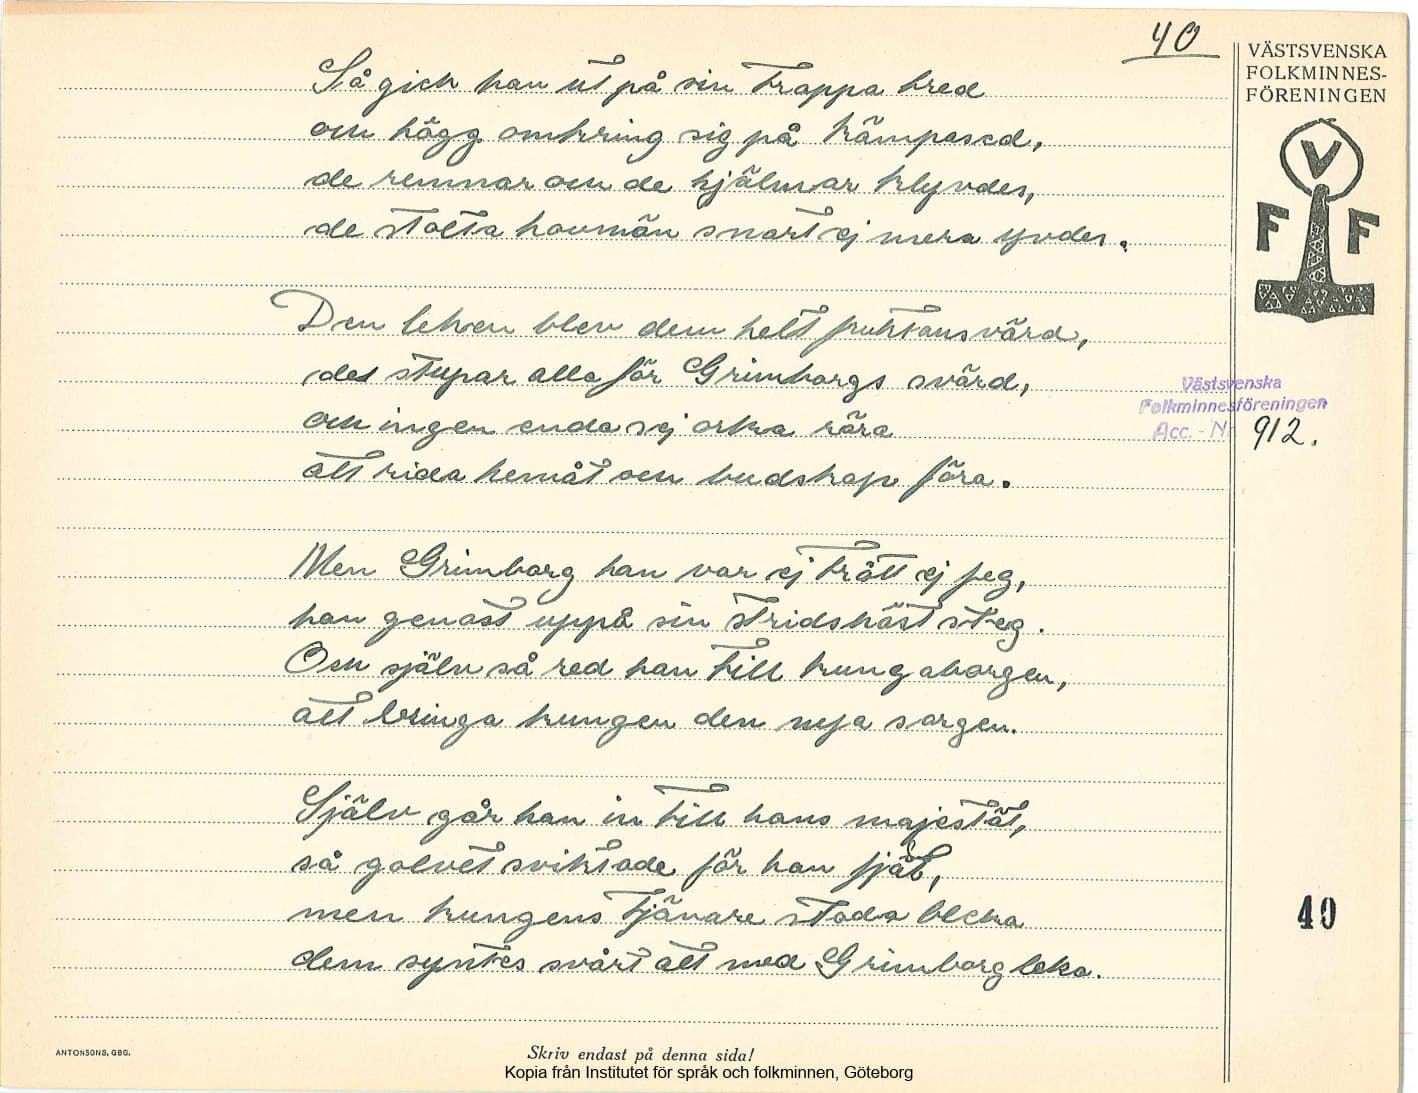 40
VÄSTSVENSKA
FOLKMINNES-
FÖRENINGEN
V
F F
Så gick han ut på sin trappa bred
och högg omkring sig på kämpased,
de remnar och de hjälmar klyvdes,
de stolta hovmän snart ej mera yvdes.
Den leken blev dem helt fruktansvärd,
det stupar alla för Grimborgs svärd,
och ingen enda ej orka röra
att rida hemåt och budskap föra.
Västsvenska
Folkminnesföreningen
Acc. - Nr 912.
Men Grimborg han var ej trött ej feg,
han genast uppå sin stridshäst steg.
Och själv så red han till kungaborgen,
att bringa kungen den nya sorgen.
Själv går han in till hans majestät,
så golvet sviktade för han fjät,
men kungens tjänare stodo bleka
dem syntes svårt att med Grimborg leka.
40
ANTONSONS, GBG.
Skriv endast på denna sida!
Kopia från Institutet för språk och folkminnen, Göteborg